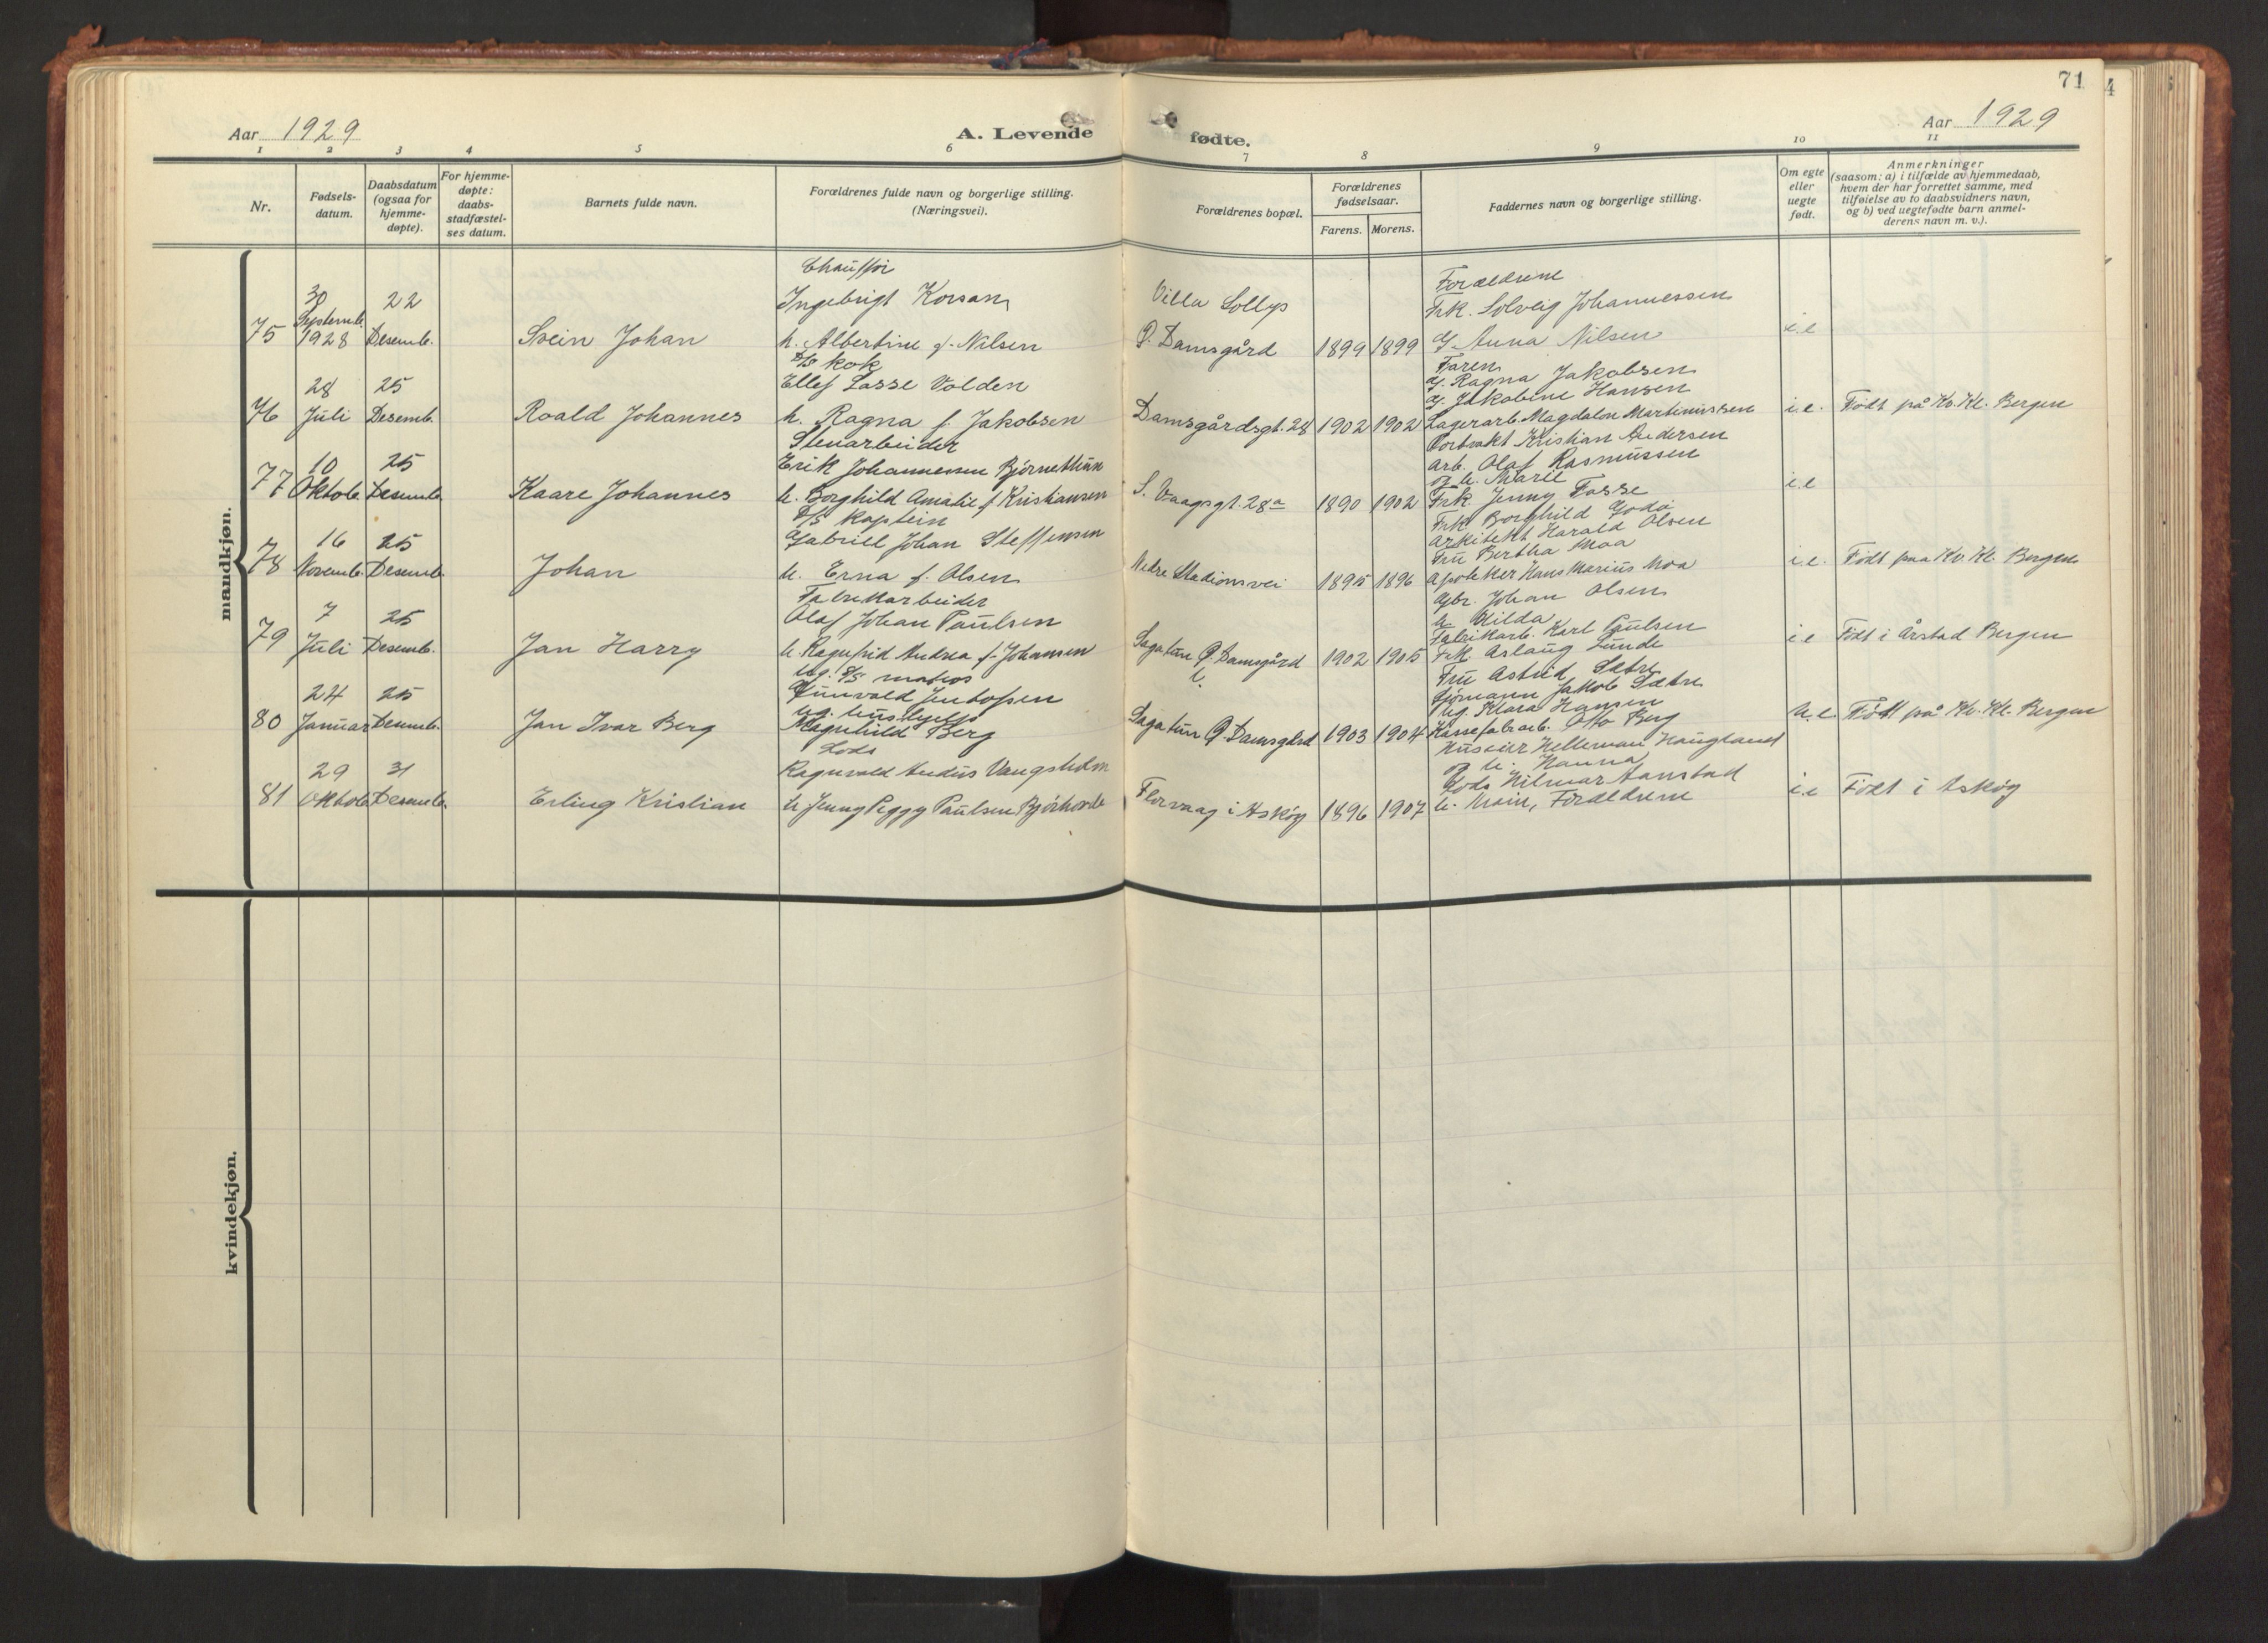 71
4
Aar 1929
A. Levende fødte.
Aar 1929
1 2 3 4 5 6 7 8 9 10 11
Nr.
Fødsels-
datum.
Daabsdatum
(ogsaa for
hjemme-
døpte).
For hjemme-
døpte:
daabs-
stadfæstel-
ses datum.
Barnets fulde navn.
Forældrenes fulde navn og borgerlige stilling.
(Næringsvei).
Forældrenes bopæl.
Forældrenes
fødselsaar.
Farens. Morens.
Faddernes navn og borgerlige stilling.
Om egte
eller
uegte
født.
Anmerkninger
(saasom: a) i tilfælde av hjemmedaab,
hvem der har forrettet samme, med
tilføielse av to daabsvidners navn,
og b) ved uegtefødte barn anmel-
derens navn m. v.).
mandkjøn.
75
30
Septemb.
1928
22
Desemb.
Svein Johan
Chauffør
Ingebrigt Korsan
h. Albertine f. Nilsen
Villa Sollys
Ø. Damsgård
1899 1899
Forældrene
Frk. Solveig Johannessen
Gj. Anna Nilsen
i.e
76
28
Juli
25
Desemb.
Roald Johannes
D/S kok
Ellef Lasse Volden
h. Ragna f. Jakobsen
Damsgårdsgt. 28
1902 1902
Faren
Gj. Ragna Jakobsen
Gj. Jakobine Hansen
Lagerarb. Magdalon Martinussen
Portvakt Kristian Andersen
i.e.
Født på Kv. Kl. Bergen
77
10
Oktob.
25
Desemb.
Kaare Johannes
Stenarbeider
Erik Johannessen Bjørnethun
h. Borghild Amalie f Kristiansen
S. Vaagsgt. 28a
1890 1902
Arb. Olaf Rasmussen
og h. Marie
Frk Jenny Fosse
Frk Borghild Godø
i.e
78
16
Novemb.
25
Desemb.
Johan
D/S kaptein
Gabriel Johan Steffensen
h. Erna f. Olsen
Nedre Stadionsvei
1895 1896
Arkitekt Harald Olsen
Fru Bertha Moa
Apoteker Hans Marius Moa
Gbr. Johan Olsen
h Hilda
i.e.
Født paa Kv. Kl. Bergen
79
7
Juli
25
Desemb.
Jan Harry
Fabrikkarbeider
Olaf Johan Paulsen
h. Ragnfrid Andrea f. Johansen
Sagatun Ø. Damsgård
1902 1905
Fabrikarb. Karl Paulsen
Frk. Aslaug Lunde
Fru Astrid Sætre
i.e
Født i Årstad Bergen
80
24
Januar
25
Desemb.
Jan Ivar Berg
Ug. D/S matros
Gunvald Jentoftsen
Ug. hushjelp
Magnhild Berg
Sagatun Ø. Damsgård
1903 1904
Sjømann Jakob Sætre
Ug. Klara Hansen
Kassefabarb. Otto Berg
u.e.
Født på Kv. Kl. Bergen
81
29
Oktob.
31
Desemb.
Erling Kristian
Lods
Ragnvald Andus Vaugsholm
h Jenny Peggy Paulsen Bjørhovde
Florvaag i Askøy
1896 1907
Huseier Hellemann Haugland
og h. Hanna
Lods Hilmar Aanstad
h. Main, Forældrene
i.e
Født i Askøy
kvindekjøn.